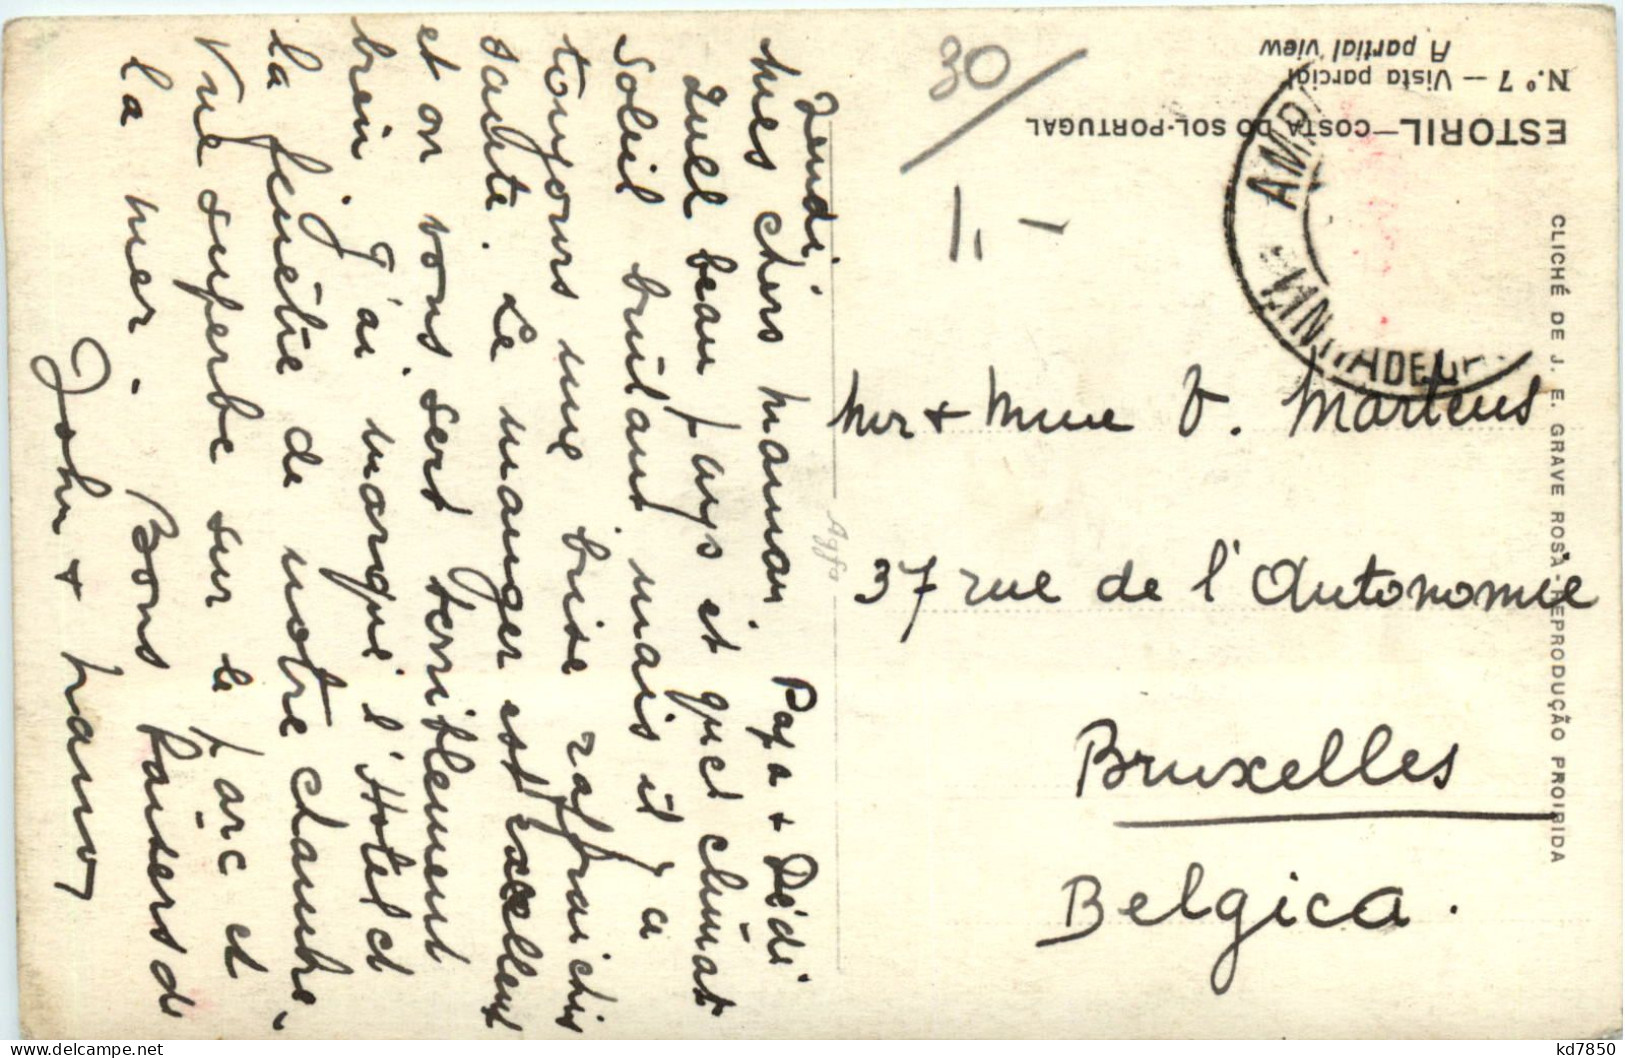 Jeudi,
Mes chers maman, Papa + Dédi
Quel beau pays et quel climat
soleil brûlant mais il y a
toujours une brise raffraichis
sante. Le manger est excellent
et on vous sert terriblement
bien. J'ai marqué l'Hôtel et
la fenêtre de notre chambre.
Vue superbe sur le parc et
la mer. Bons baisers de
John +
30
1.-
N.º 7 — Vista parcial
A partial view
ESTORIL—COSTA DO SOL-PORTUGAL
Mr + Mme V. Martens
37 rue de l'Autonomie
Bruxelles
Belgica.
Agfa
CLICHÉ DE J. E. GRAVE ROSA - REPRODUÇÃO PROIBIDA
kd7850